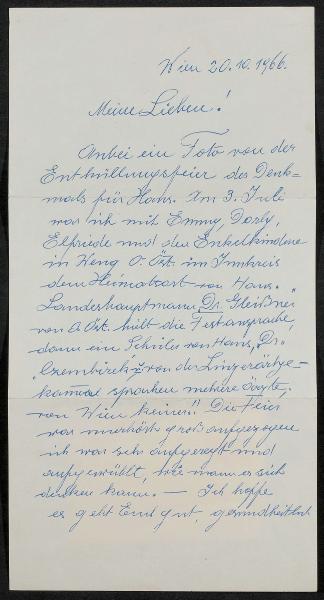 Wien 20.10.1966.
Meine Lieben!
Anbei ein Foto von der
Enthüllungsfeier des Denk=
mals für Hans. Am 3. Juli
war ich mit Emmy, Dorly,
Elfriede und den Enkelkindern
in Weng O.Öst. im Innkreis
dem Heimatort von Hans.
Landeshauptmann Dr. Gleißner
von O.Öst. hielt die Festansprache,
dann ein Schüler von Hans, Dr.
von der Linzerärzte=
sprachen mehrere Ärzte,
von Wien keiner!! Die Feier
war unerhört groß aufgezogen
ich war sehr aufgeregt und
aufgewühlt, wie man es sich
denken kann. — Ich hoffe
es geht Euch gut, gesundheitlich